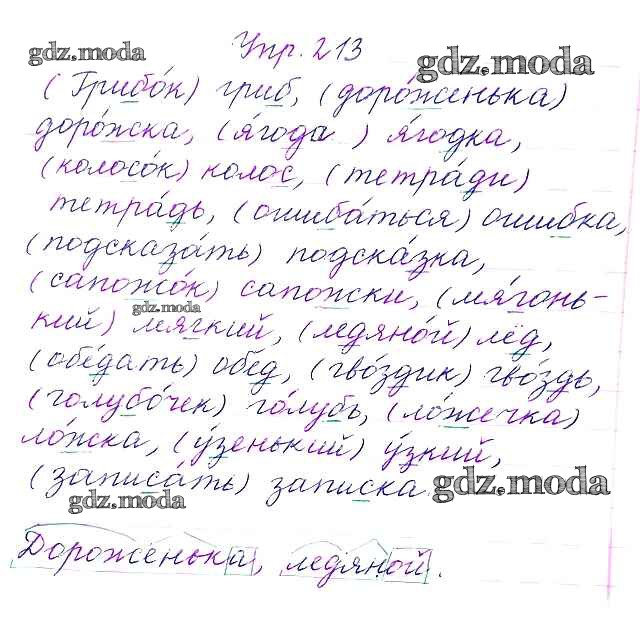 gdz.moda Упр. 213 gdz.moda
(Грибо́к) гриб, (доро́женька)
доро́жка, (я́года ) я́годка,
(колосо́к) колос, (тетра́ди)
тетра́дь, (ошиба́ться) ошибка,
(подсказа́ть) подска́зка,
(сапожо́к) сапожки, (мя́гонь-
gdz.moda
кий) мягкий, (ледяно́й) лёд,
(обе́дать) обе́д, (гво́здик) гво́здь,
(голубо́чек) го́лубь, (ло́жечка)
ло́жка, (у́зенький) у́зкий,
(записа́ть) записка. gdz.moda
gdz.moda
Дороженька, ледяной.